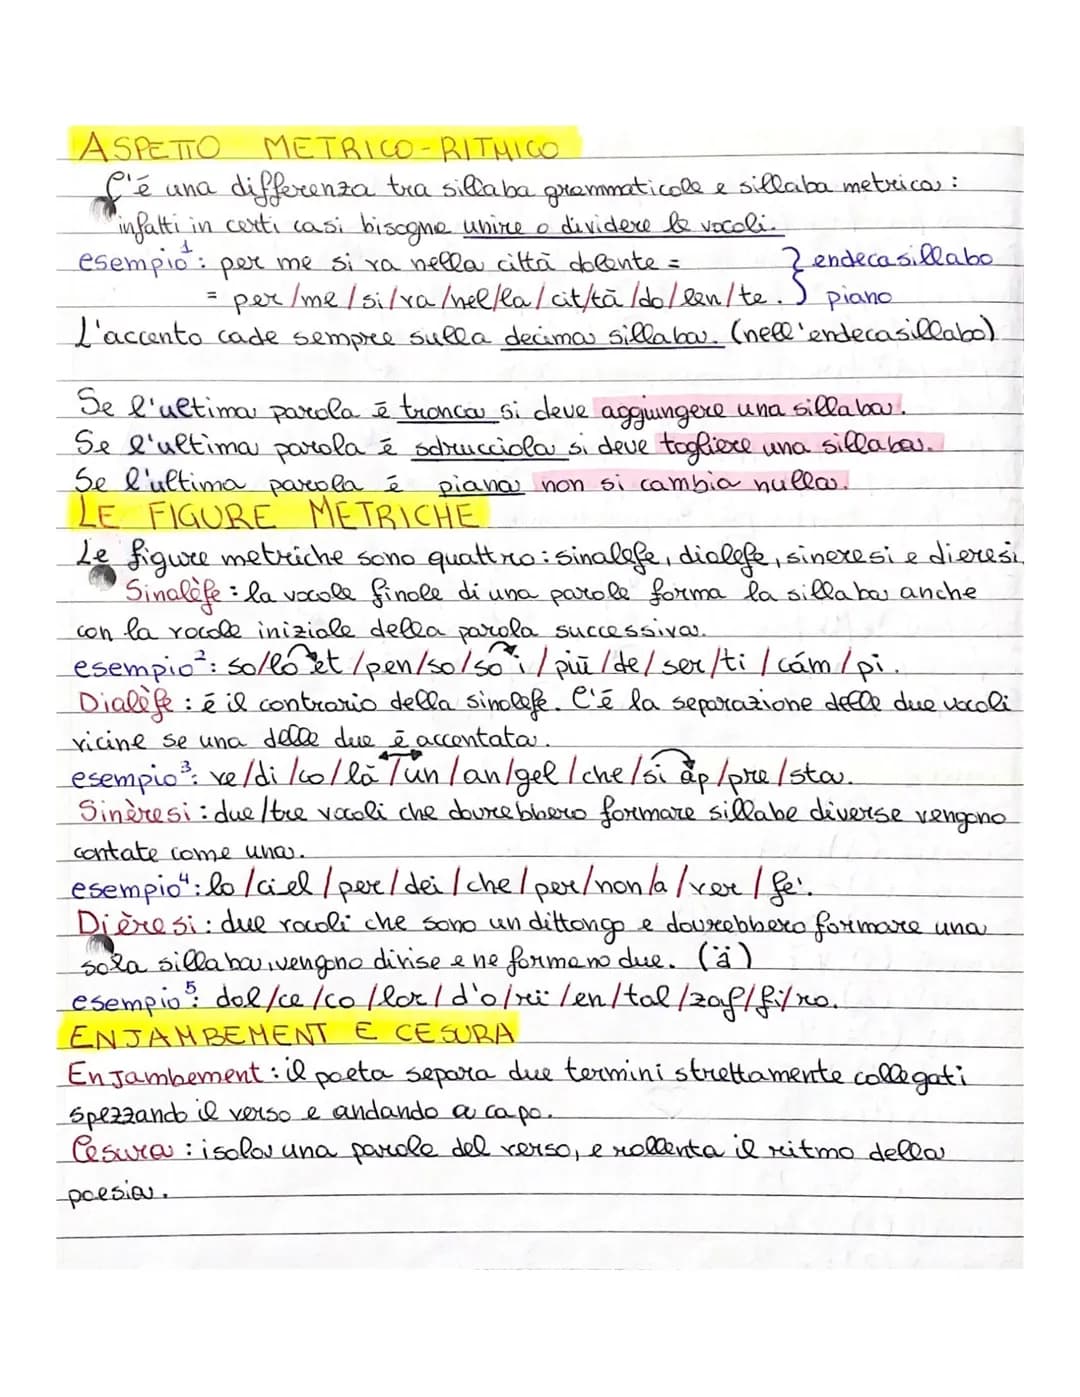 ASPETTO METRICO-RITMICO
C'è una differenza tra sillaba grammaticale e sillaba metrica:
infatti in certi casi bisogna unire o dividere le vocali.
esempio¹: per me si va nella città dolente = } endecasillabo
= per/me/si/va/nel/la/cit/tà/do/len/te. } piano
L'accento cade sempre sulla decima sillaba. (nell'endecasillabo)
Se l'ultima parola è tronca si deve aggiungere una sillaba.
Se l'ultima parola è sdrucciola si deve togliere una sillaba.
Se l'ultima parola è piana non si cambia nulla.
LE FIGURE METRICHE
Le figure metriche sono quattro: sinalefe, dialefe, sineresi e dieresi
Sinalèfe: la vocale finale di una parola forma la sillaba anche
con la vocale iniziale della parola successiva.
esempio²: so/lo et/pen/so/so i/più/de/ser/ti/cám/pi.
Dialèfe: è il contrario della sinalefe. C'è la separazione delle due vocali
vicine se una delle due è accentata.
esempio³: ve/di/co/là/un/an/gel/che/si ap/pre/sta.
Sinèresi: due/tre vocali che dovrebbero formare sillabe diverse vengono
contate come una.
esempio⁴: lo/ciel/per/dei/che/per/non/a/ver/fe'.
Dièresi: due vocali che sono un dittongo e dovrebbero formare una
sola sillaba, vengono divise e ne formano due. (ä)
esempio⁵: dol/ce/co/lor/d'o/rï/en/tal/zaf/fi/ro.
ENJAMBEMENT E CESURA
Enjambement: il poeta separa due termini strettamente collegati
spezzando il verso e andando a capo.
Cesura: isola una parola del verso, e rallenta il ritmo della
poesia.